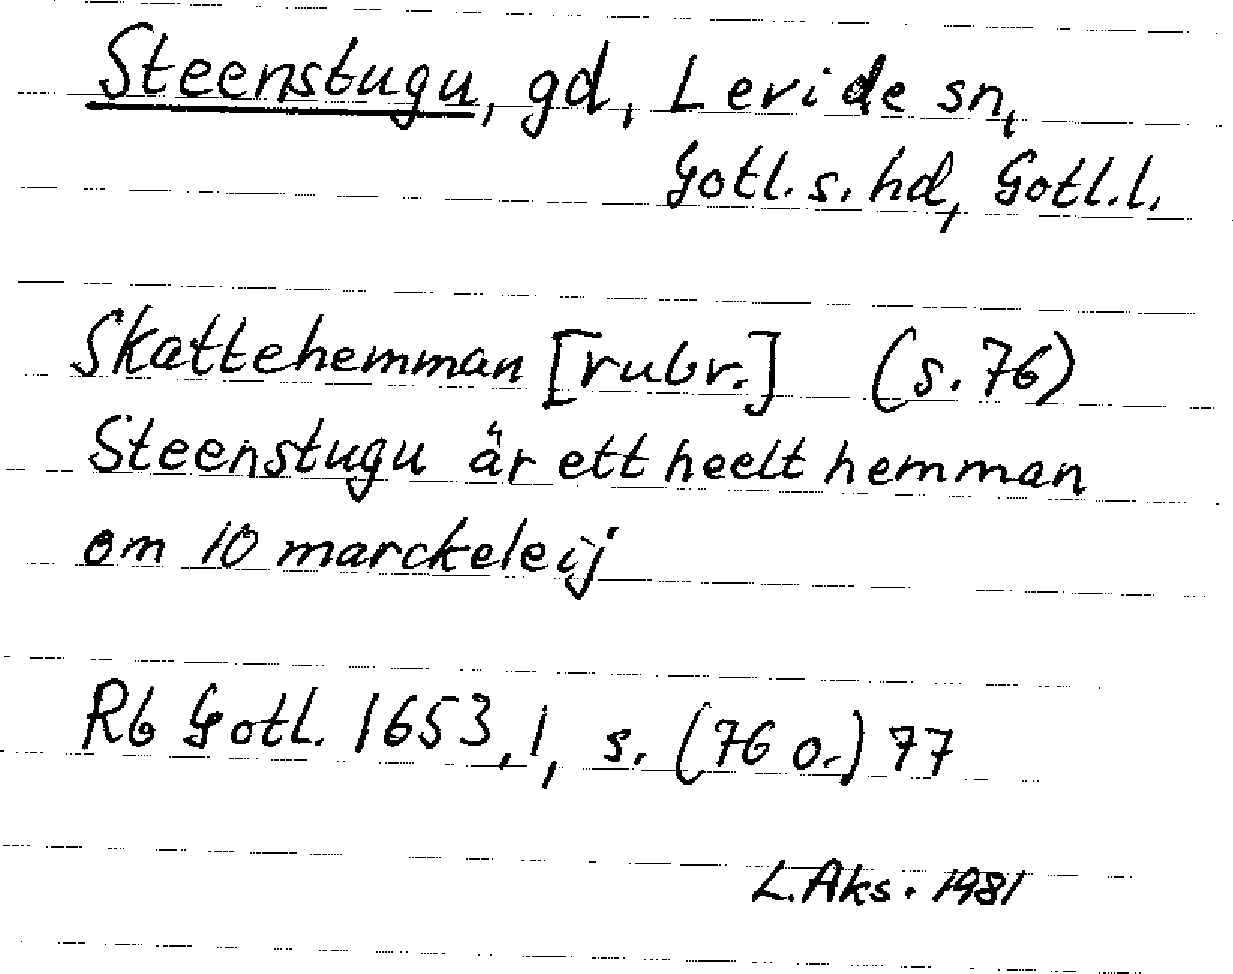 Steenstugu, gd, Levide sn,
Gotl. s. hd, Gotl. l.
Skattehemman [rubr.] (s. 76)
Steenstugu är ett heelt hemman
om 10 marckeleij
Rb Gotl. 1653, 1, s. (76 o.) 77
L. Aks. 1981